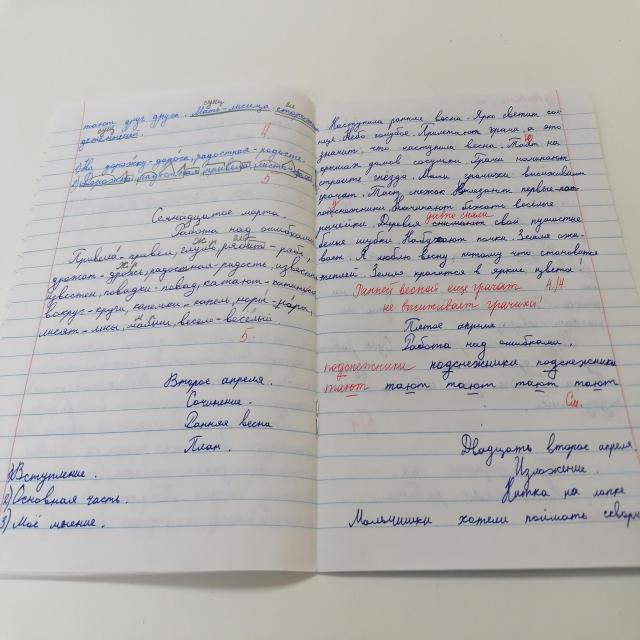 сущ. гл.
тают друг друга. Мать-лисица сторожит
сущ.
детёнышей.
4
1) На дорожку-дорога, радостная-радость.
5
Семнадцатое марта.
Работа над ошибками.
Привела-привел,
дрожат-дрожь, радостная-радость,
известен, повадки-повад,
вокруг-круги, капельки-капель, норки-норы,
лисят-лисы, весело-весёлый.
5.
Второе апреля.
Сочинение.
Ранняя весна
План.
1) Вступление.
2) Основная часть.
3) Моё мнение.
Наступила ранняя весна. Ярко светит сол
нце. Небо голубое. Прилетают грачи, а это
значит, что наступила весна. Тают на
крышах домов сосульки. Грачи начинают
строить гнёзда. Мамы грачихи высиживают
грачат. Тает снежок. Вылазают первые
потснежники. Начинают бежать весёлые
давно сняли
ручейки. Деревья снимают свои пушистые
белые шубки. Набухают почки. Земля ожи-
вает. Я люблю весну, потому что становится
теплей. Земля красится в яркие цвета!
Ранней весной ещё грачат 4/4
не высиживает грачиха!
Пятое апреля.
Работа над ошибками.
подснежники подснежники подснежники
тают тают тают тают тают
См.
Двадцать второе апреля
Изложение.
Нитка на лапке
Мальчишки хотели поймать скворц